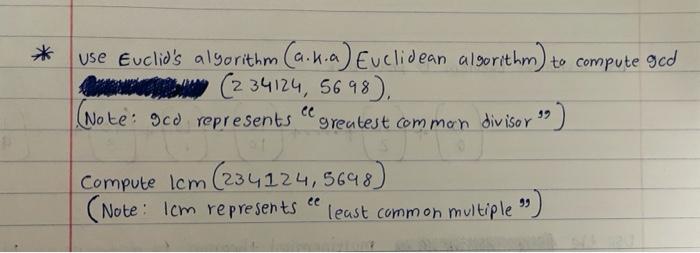 * use Euclid's algorithm (a.k.a) Euclidean algorithm) to compute gcd
(234124, 5698).
(Note: gcd represents “greatest common divisor”)
Compute lcm (234124, 5698)
(Note: lcm represents “least common multiple”)